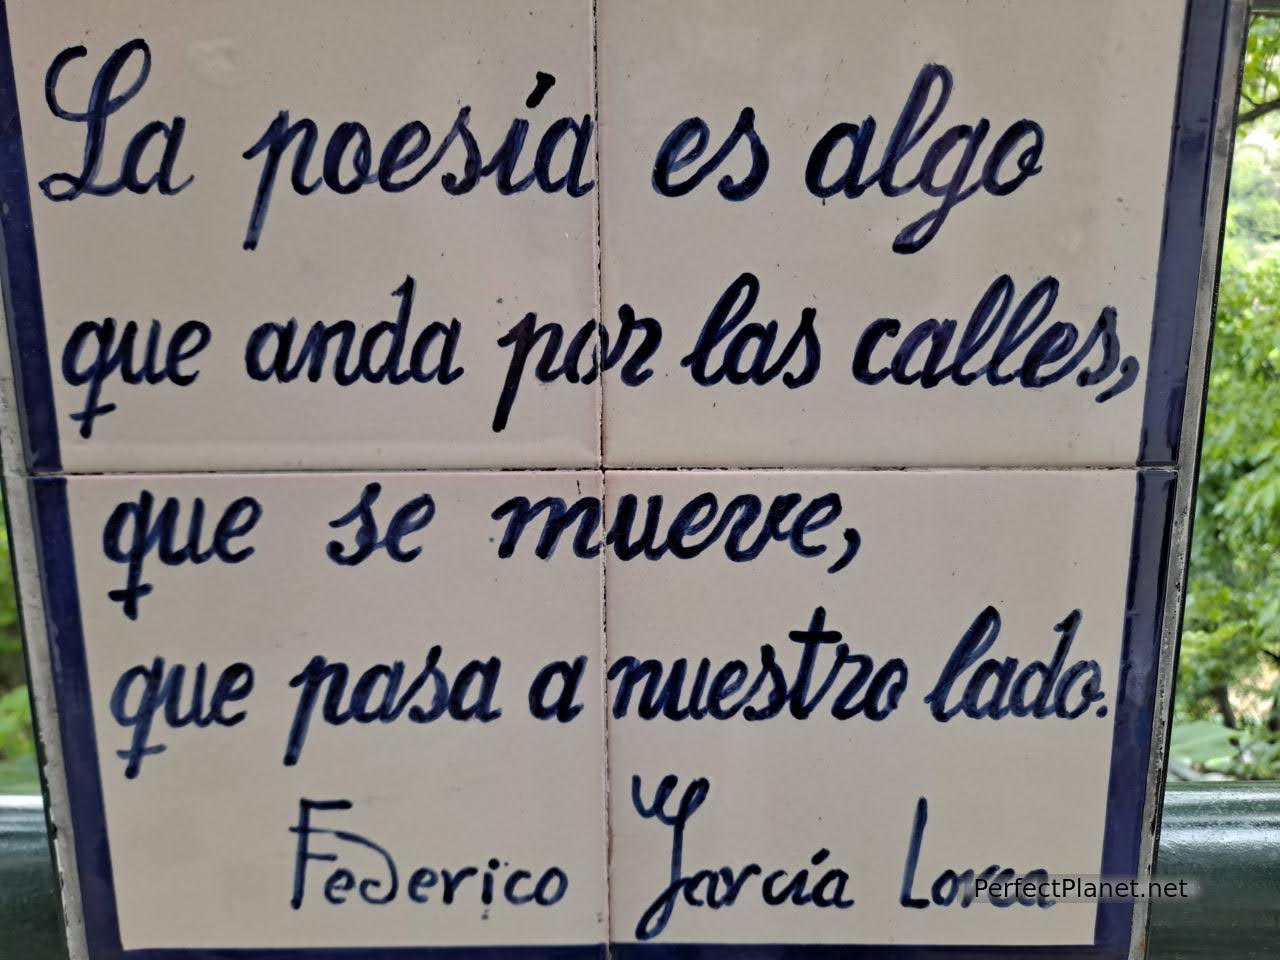 La poesía es algo
que anda por las calles,
que se mueve,
que pasa a nuestro lado.
Federico García Lorca
PerfectPlanet.net